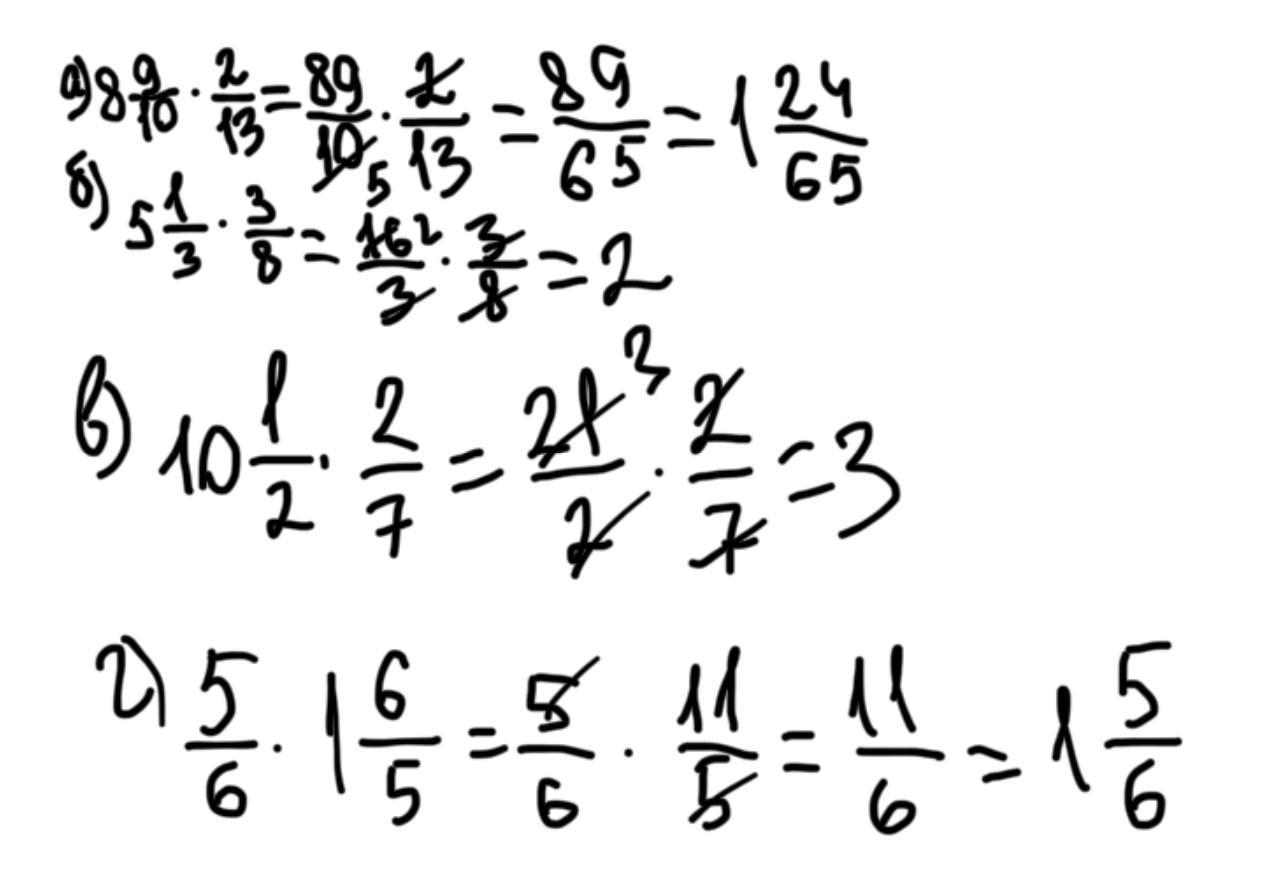 а) 8 9/10 · 2/13 = 89/10 5 · 2/13 = 89/65 = 1 24/65
б) 5 1/3 · 3/8 = 16 2/3 · 3/8 = 2
в) 10 1/2 · 2/7 = 21 3/2 · 2/7 = 3
г) 5/6 · 1 6/5 = 5/6 · 11/5 = 11/6 = 1 5/6